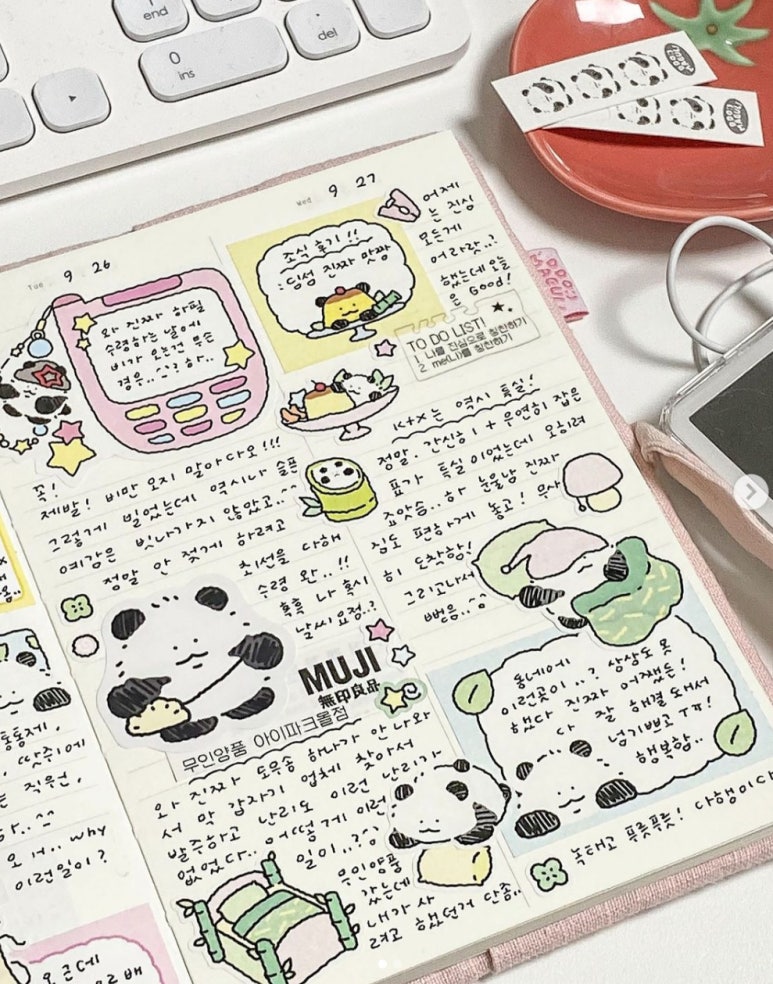 end
0
ins
del
Tue 9 26
와 진짜 하필
수령하는 날에
비가 오는건 무슨
경우..^^? 하..
꼭!
제발! 비만 오지 말아다오!!!
그렇게 빌었는데 역시나 슬픈
예감은 빗나가지 않았고..^^
정말 안 젖게 하려고
최선을 다해
수령 완..!!
흑흑 나 혹시
날씨 요정..?
MUJI
無印良品
무인양품 아이파크몰점
와 진짜 도무송 하나가 안 나와
서 막 갑자기 업체 찾아서
발주하고 난리도 이런 난리가
없었다.. 어떻게 이런
일이..?
무인양품
갔는데
내가 사
려고 했던거 단종..
Wed 9 27
조식 후기!!
딤섬 진짜 맛짱
어제
는 진심
모든게
어라랏..?
했는데 오늘
은 Good!
TO DO LIST!
1. 나를 진심으로 칭찬하기
2. me(나)를 칭찬하기
KTX는 역시 특실!
정말. 간신히 1+ 우연히 잡은
표가 특실이었는데 오히려
죠앗슴..하 눈물남 진짜
짐도 편하게 놓고! 무사
히 도착함!
그리고나서
뻗음..
동네에
이런곳이..? 상상도 못
했다 진짜 어쨌든!
다 잘 해결돼서
넘기쁘고 TT!
행복함.
녹태고 푸릇푸릇! 다행이다
통통제,
, 땃쥐에
는 직원,
와..^^
오 ㅓ.. why
이런일이?
요근데